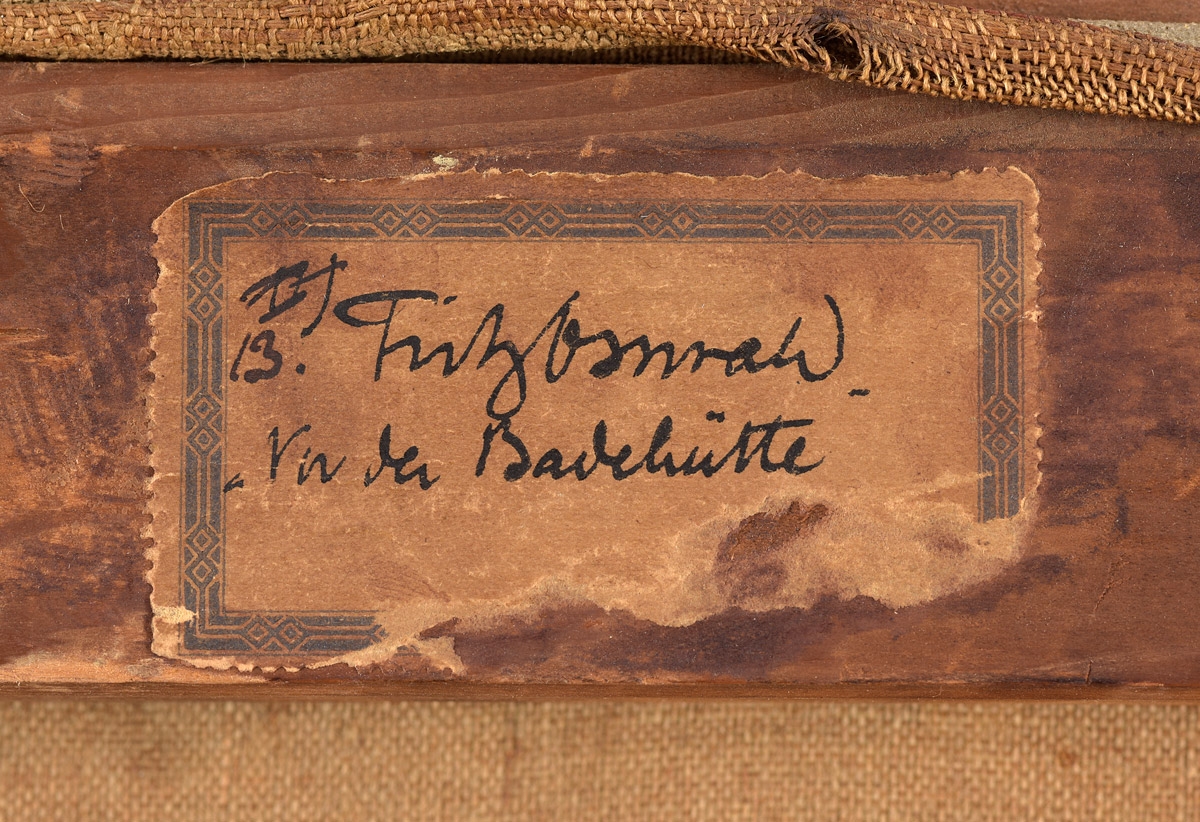 II)
13. Fritz Osswald
„Vor der Badehütte